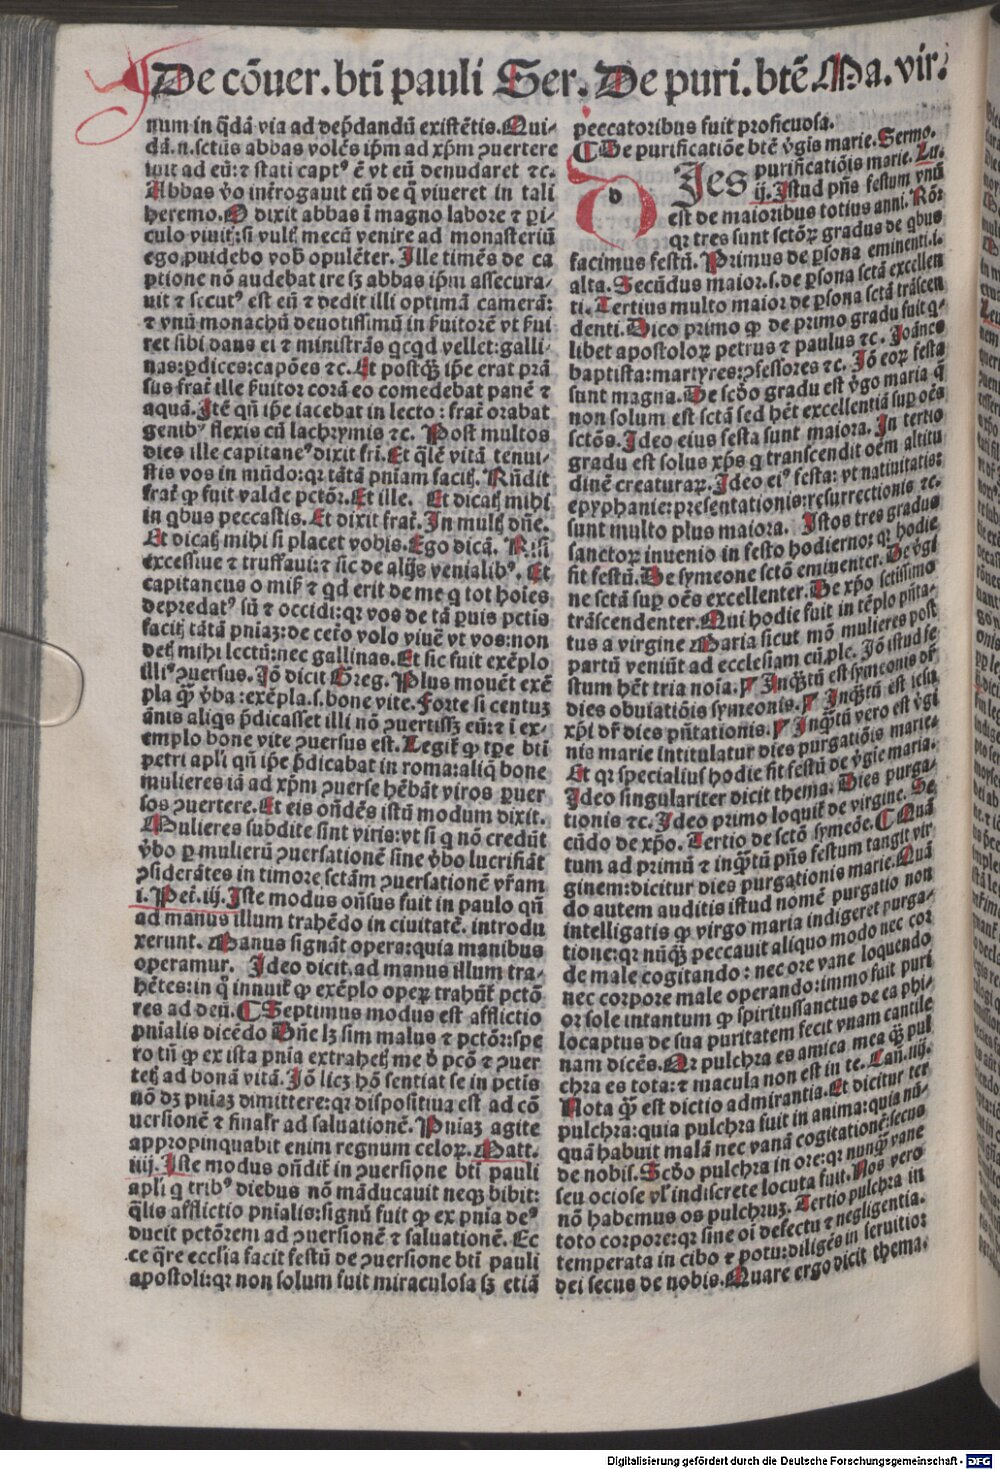 De cōuer. btī pauli Ser. De puri. btē Ma. vir.
num in q̄dā via ad dep̄dandū existētis. Qui-
dā.n.sctūs abbas volēs ip̄m ad xp̄m ꝯuertere
iuit ad eū: ⁊ stati captꝰ ē vt eū denudaret ⁊c.
Abbas v̄o int̄rogauit eū de q̄ viueret in tali
heremo. Q dixit abbas ī magno labore ⁊ ꝑi-
culo viuit: si vultꝭ mecū venire ad monasteriū
ego ꝓuidebo vob̄ opulēter. Ille timēs de ca
ptione nō audebat ire sꝫ abbas ip̄m assecura-
uit ⁊ secutꝰ est eū ⁊ dedit illi optimā camerā:
⁊ vnū monachū deuotissimū in s̄uitorē vt s̄ui
ret sibi dans ei ⁊ ministrās qcqd vellet: galli-
nas: ꝑdices: capōes ⁊c. Et postqꝫ ip̄e erat prā
sus frat̄ ille s̄uitor corā eo comedebat panē ⁊
aquā. Itē qn̄ ip̄e iacebat in lecto: frat̄ orabat
genibꝰ flexis cū lachrymis ⁊c. Post multos
dies ille capitaneꝰ dixit fr̄i. Et q̄lē vitā tenui-
stis vos in mūdo: qꝛ tātā pniam facitꝭ. Rn̄dit
frat̄ ꝙ fuit valde pctōr. Et ille. Et dicatꝭ mihi
in qbus peccastis. Et dixit frat̄. In multꝭ dn̄e.
Et dicatꝭ mihi si placet vobis. Ego dicā. Risi
excessiue ⁊ truffaui: ⁊ sic de alijs venialibꝰ. Et
capitaneus o mis̄ ⁊ qd erit de me q tot hoīes
depredatꝰ sū ⁊ occidi: qꝛ vos de tā ꝑuis pctis
facitꝭ tātā pniaꝫ: de cet̄o volo viuē vt vos: non
detꝭ mihi lectū: nec gallinas. Et sic fuit exēplo
illiꝰ ꝯuersus. Iō dicit Greg. Plus mouēt exē
pla qꝫ v̄ba: exēpla.s.bone vite. Forte si centuꝫ
ānis aliqs p̄dicasset illi nō ꝯuertissꝫ eū: ⁊ ī ex-
emplo bone vite ꝯuersus est. Legit̄ ꝙ tꝑe btī
petri apl̄i qn̄ ip̄e p̄dicabat in roma: aliq̄ bone
mulieres iā ad xp̄m ꝯuerse hēbāt viros ꝑuer
sos ꝯuertere. Et eis on̄dēs istū modum dixit.
Mulieres subdite sint viris: vt si q nō credūt
v̄bo ꝑ mulierū ꝯuersationē sine v̄bo lucrifiāt
ꝯsiderātes in timore sctām ꝯuersationē vr̄am
i. Pet̄. iij. Iste modus on̄sus fuit in paulo qn̄
ad manus illum trahēdo in ciuitatē. introdu
xerunt. Manus signāt opera: quia manibus
operamur. Ideo dicit. ad manus illum tra-
hētes: in q̄ innuit̄ ꝙ exēplo operꝝ trahūt̄ pctō
res ad deū. Septimus modus est afflictio
pnialis dicēdo Dn̄e lꝫ sim malus ⁊ pctōr: spe
ro tn̄ ꝙ ex ista pnia extrahetꝭ me d̄ pcō ⁊ ꝯuer
tetꝭ ad bonā vitā. Iō licꝫ hō sentiat se in pctis
nō dꝫ pniaꝫ dimittere: qꝛ dispositiua est ad cō
uersionē ⁊ finalr̄ ad saluationē. Pniaꝫ agite
appropinquabit enim regnum celorꝝ. Matt.
iiij. Iste modus on̄dit̄ in ꝯuersione btī pauli
apl̄i q tribꝰ diebus nō māducauit neqꝫ bibit:
q̄lis afflictio pnialis: signū fuit ꝙ ex pnia deꝰ
ducit pctōrem ad ꝯuersionē ⁊ saluationē. Ec
ce q̄re ecclīa facit festū de ꝯuersione btī pauli
apostoli: qꝛ non solum fuit miraculosa sꝫ etiā
peccatoribus fuit proficuosa.
De purificatiōe btē v̄gis marie. Sermo.
DIes purificatiōis marie. Lu.
ij. Istud pn̄s festum vnū
est de maioribus totius anni. Rō:
qꝛ tres sunt sctōꝝ gradus de qbus
facimus festū. Primus de ꝑsona eminenti.i.
alta. Secūdus maior.s. de ꝑsona sctā excellen
ti. Tertius multo maior de ꝑsona sctā trāscen
denti. Dico primo ꝙ de primo gradu fuit q-
libet apostolorꝝ petrus ⁊ paulus ⁊c. Joānes
baptista: martyres: ꝯfessores ⁊c. Iō eorꝝ festa
sunt magna. De scd̄o gradu est v̄go maria q̄
non solum est sctā sed hēt excellentiā suꝑ oēs
sctōs. Ideo eius festa sunt maiora. In tertio
gradu est solus xp̄s q transcendit oēm altitu
dinē creaturarꝝ. Ideo eiꝰ festa: vt natiuitatis:
epyphanie: presentationis: resurrectionis ⁊c.
sunt multo plus maiora. Istos tres gradus
sanctorꝝ inuenio in festo hodierno: qꝛ hodie
fit festū. De symeone sctō eminenter. De v̄gi
ne sctā suꝑ oēs excellenter. De xp̄o sctissimo
trāscendenter. Qui hodie fuit in tēplo p̄nta-
tus a virgine Maria sicut mō mulieres post
partū veniūt ad ecclesiam cū ꝓle. Iō istud fe
stum hēt tria noīa. Inqꝫtū est symeonis dr̄
dies obuiatiōis symeonis. Inqꝫtū est iesu
xp̄i dr̄ dies p̄ntationis. Inqꝫtū vero est v̄gi
nis marie intitulatur dies purgatiōis marie.
Et qꝛ specialius hodie fit festū de v̄gīe maria.
Ideo singulariter dicit thema. Dies purga-
tionis ⁊c. Ideo primo loquit̄ de virgine. Se
cūdo de xp̄o. Tertio de sctō symeōe. Quā
tum ad primū ⁊ inqꝫtū pn̄s festum tangit vir
ginem: dicitur dies purgationis marie. Quā
do autem auditis istud nomē purgatio non
intelligatis ꝙ virgo maria indigeret purga-
tione: qꝛ nūqꝫ peccauit aliquo modo nec cor
de male cogitando: nec ore vane loquendo
nec corpore male operando: immo fuit puri
or sole intantum ꝙ spiritussanctus de ea phi-
locaptus de sua puritatem fecit vnam cantile
nam dicēs. Qꝛ pulchra es amica mea qꝫ pul
chra es tota: ⁊ macula non est in te. Can. iiij.
Nota qꝫ est dictio admirantia. Et dicitur ter
pulchra: quia pulchra fuit in anima: quia nū-
quā habuit malā nec vanā cogitationē: secus
de nobis. Scd̄o pulchra in ore: qꝛ nunqꝫ vane
seu ociose vl̓ indiscrete locuta fuit. Nos vero
nō habemus os pulchruꝫ. Tertio pulchra in
toto corpore: qꝛ sine oī defectu ⁊ negligentia.
temperata in cibo ⁊ potu: diligēs in seruitio:
dei secus de nobis. Quare ergo dicit thema.
Digitalisierung gefördert durch die Deutsche Forschungsgemeinschaft - DFG